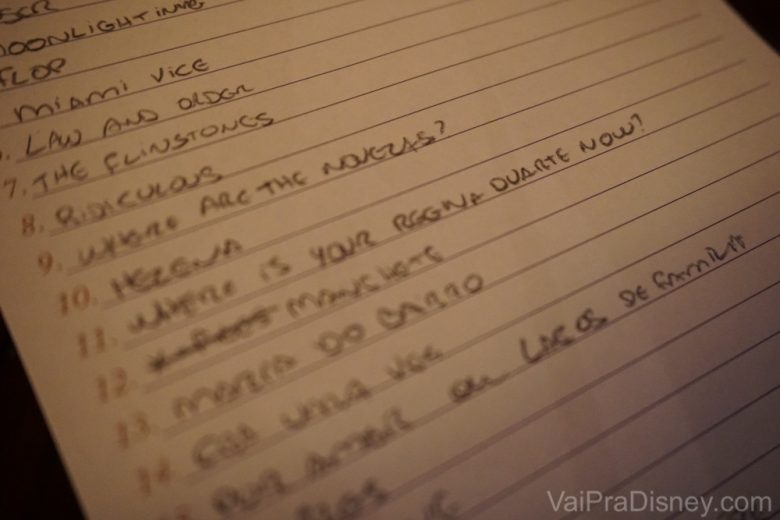 MOONLIGHTING
FLOP
MIAMI VICE
LAW AND ORDER
7. THE FLINSTONES
8. RIDICULOUS
9. WHERE ARE THE NOVELAS?
10. HELENA
11. WHERE IS YOUR REGINA DUARTE NOW?
12. MANCHETE
13. DO CARRO
14. 
POR AMOR OU LAÇOS DE FAMILIA
VaiPraDisney.com